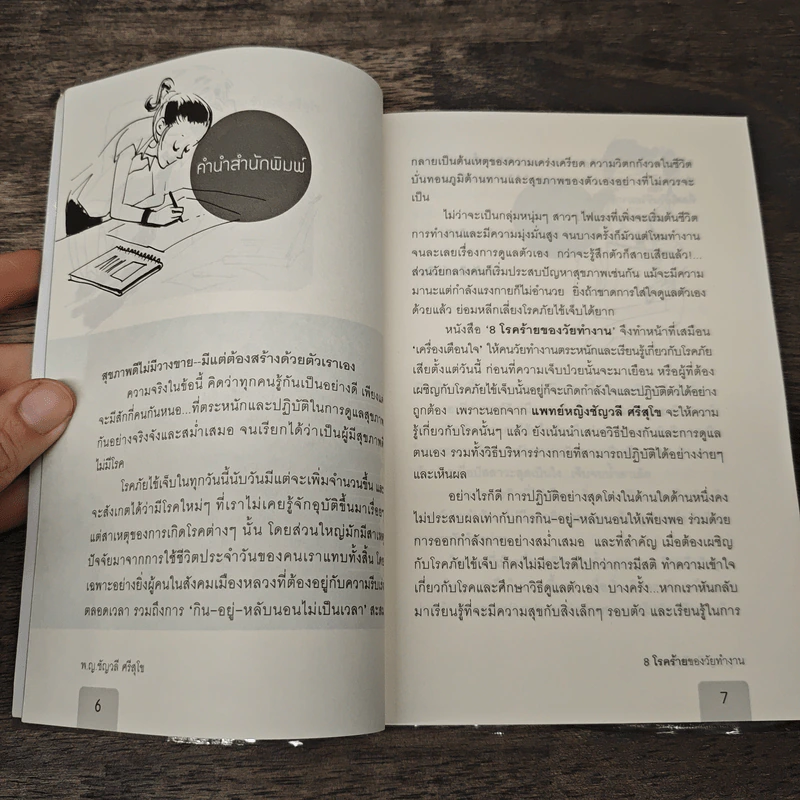 คำนำสำนักพิมพ์
สุขภาพดีไม่มีวางขาย--มีแต่ต้องสร้างด้วยตัวเราเอง
ความจริงในข้อนี้ คิดว่าทุกคนรู้กันเป็นอย่างดี เพียงแต่
จะมีสักกี่คนกันหนอ...ที่ตระหนักและปฏิบัติในการดูแลสุขภาพ
กันอย่างจริงจังและสม่ำเสมอ จนเรียกได้ว่าเป็นผู้มีสุขภาพดี
ไม่มีโรค
โรคภัยไข้เจ็บในทุกวันนี้นับวันมีแต่จะเพิ่มจำนวนขึ้น และ
จะสังเกตได้ว่ามีโรคใหม่ๆ ที่เราไม่เคยรู้จักอุบัติขึ้นมาเรื่อยๆ
แต่สาเหตุของการเกิดโรคต่างๆ นั้น โดยส่วนใหญ่มักมีสาเหตุ
ปัจจัยมาจากการใช้ชีวิตประจำวันของคนเราแทบทั้งสิ้น โดย
เฉพาะอย่างยิ่งผู้คนในสังคมเมืองหลวงที่ต้องอยู่กับความรีบเร่ง
ตลอดเวลา รวมถึงการ 'กิน-อยู่-หลับนอนไม่เป็นเวลา' สะสม
พ.ญ.ชัญวลี ศรีสุโข
6
กลายเป็นต้นเหตุของความเคร่งเครียด ความวิตกกังวลในชีวิต
บั่นทอนภูมิต้านทานและสุขภาพของตัวเองอย่างที่ไม่ควรจะ
เป็น
ไม่ว่าจะเป็นกลุ่มหนุ่มๆ สาวๆ ไฟแรงที่เพิ่งจะเริ่มต้นชีวิต
การทำงานและมีความมุ่งมั่นสูง จนบางครั้งก็มัวแต่โหมทำงาน
จนละเลยเรื่องการดูแลตัวเอง กว่าจะรู้สึกตัวก็สายเสียแล้ว!...
ส่วนวัยกลางคนก็เริ่มประสบปัญหาสุขภาพเช่นกัน แม้จะมีความ
มานะแต่กำลังแรงกายก็ไม่อำนวย ยิ่งถ้าขาดการใส่ใจดูแลตัวเอง
ด้วยแล้ว ย่อมหลีกเลี่ยงโรคภัยไข้เจ็บได้ยาก
หนังสือ '8 โรคร้ายของวัยทำงาน' จึงทำหน้าที่เสมือน
'เครื่องเตือนใจ' ให้คนวัยทำงานตระหนักและเรียนรู้เกี่ยวกับโรคภัย
เสียตั้งแต่วันนี้ ก่อนที่ความเจ็บป่วยนั้นจะมาเยือน หรือผู้ที่ต้อง
เผชิญกับโรคภัยไข้เจ็บนั้นอยู่ก็จะเกิดกำลังใจและปฏิบัติตัวได้อย่าง
ถูกต้อง เพราะนอกจาก แพทย์หญิงชัญวลี ศรีสุโข จะให้ความ
รู้เกี่ยวกับโรคนั้นๆ แล้ว ยังเน้นนำเสนอวิธีป้องกันและการดูแล
ตนเอง รวมทั้งวิธีบริหารร่างกายที่สามารถปฏิบัติได้อย่างง่ายๆ
และเห็นผล
อย่างไรก็ดี การปฏิบัติอย่างสุดโต่งในด้านใดด้านหนึ่งคง
ไม่ประสบผลเท่ากับการกิน-อยู่-หลับนอนให้เพียงพอ ร่วมด้วย
การออกกำลังกายอย่างสม่ำเสมอ และที่สำคัญ เมื่อต้องเผชิญ
กับโรคภัยไข้เจ็บ ก็คงไม่มีอะไรดีไปกว่าการมีสติ ทำความเข้าใจ
เกี่ยวกับโรคและศึกษาวิธีดูแลตัวเอง บางครั้ง...หากเราหันกลับ
มาเรียนรู้ที่จะมีความสุขกับสิ่งเล็กๆ รอบตัว และเรียนรู้ในการ
8 โรคร้ายของวัยทำงาน
7